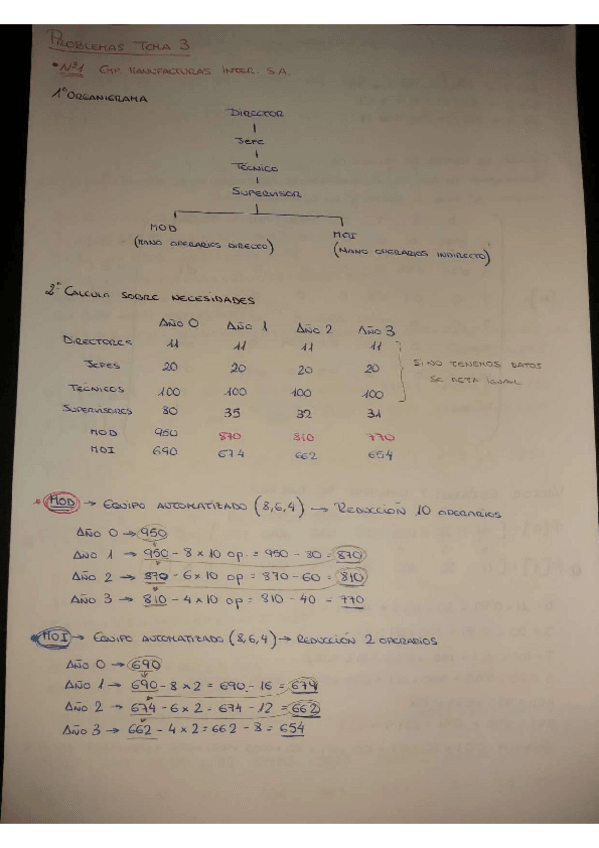 PROBLEMAS TEMA 3
• Nº1 EMP. MANUFACTURAS INTER. S.A.
1º ORGANIGRAMA
DIRECTOR
JEFE
TÉCNICO
SUPERVISOR
MOD
(MANO OPERARIOS DIRECTO)
MOI
(MANO OPERARIOS INDIRECTO)
2º CALCULA SOBRE NECESIDADES
AÑO 0 AÑO 1 AÑO 2 AÑO 3
DIRECTORES 11 11 11 11
JEFES 20 20 20 20
TÉCNICOS 100 100 100 100
SI NO TENEMOS DATOS
SE DEJA IGUAL
SUPERVISORES 80 35 32 31
MOD 950 870 810 770
MOI 690 674 662 654
* MOD → EQUIPO AUTOMATIZADO (8,6,4) → REDUCCIÓN 10 OPERARIOS
AÑO 0 → 950
AÑO 1 → 950 - 8 x 10 op. = 950 - 80 = 870
AÑO 2 → 870 - 6 x 10 op = 870 - 60 = 810
AÑO 3 → 810 - 4 x 10 op = 810 - 40 = 770
* MOI → EQUIPO AUTOMATIZADO (8,6,4) → REDUCCIÓN 2 OPERARIOS
AÑO 0 → 690
AÑO 1 → 690 - 8 x 2 = 690 - 16 = 674
AÑO 2 → 674 - 6 x 2 = 674 - 12 = 662
AÑO 3 → 662 - 4 x 2 = 662 - 8 = 654